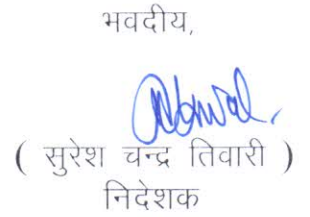 भवदीय,
( सुरेश चन्द्र तिवारी )
निदेशक